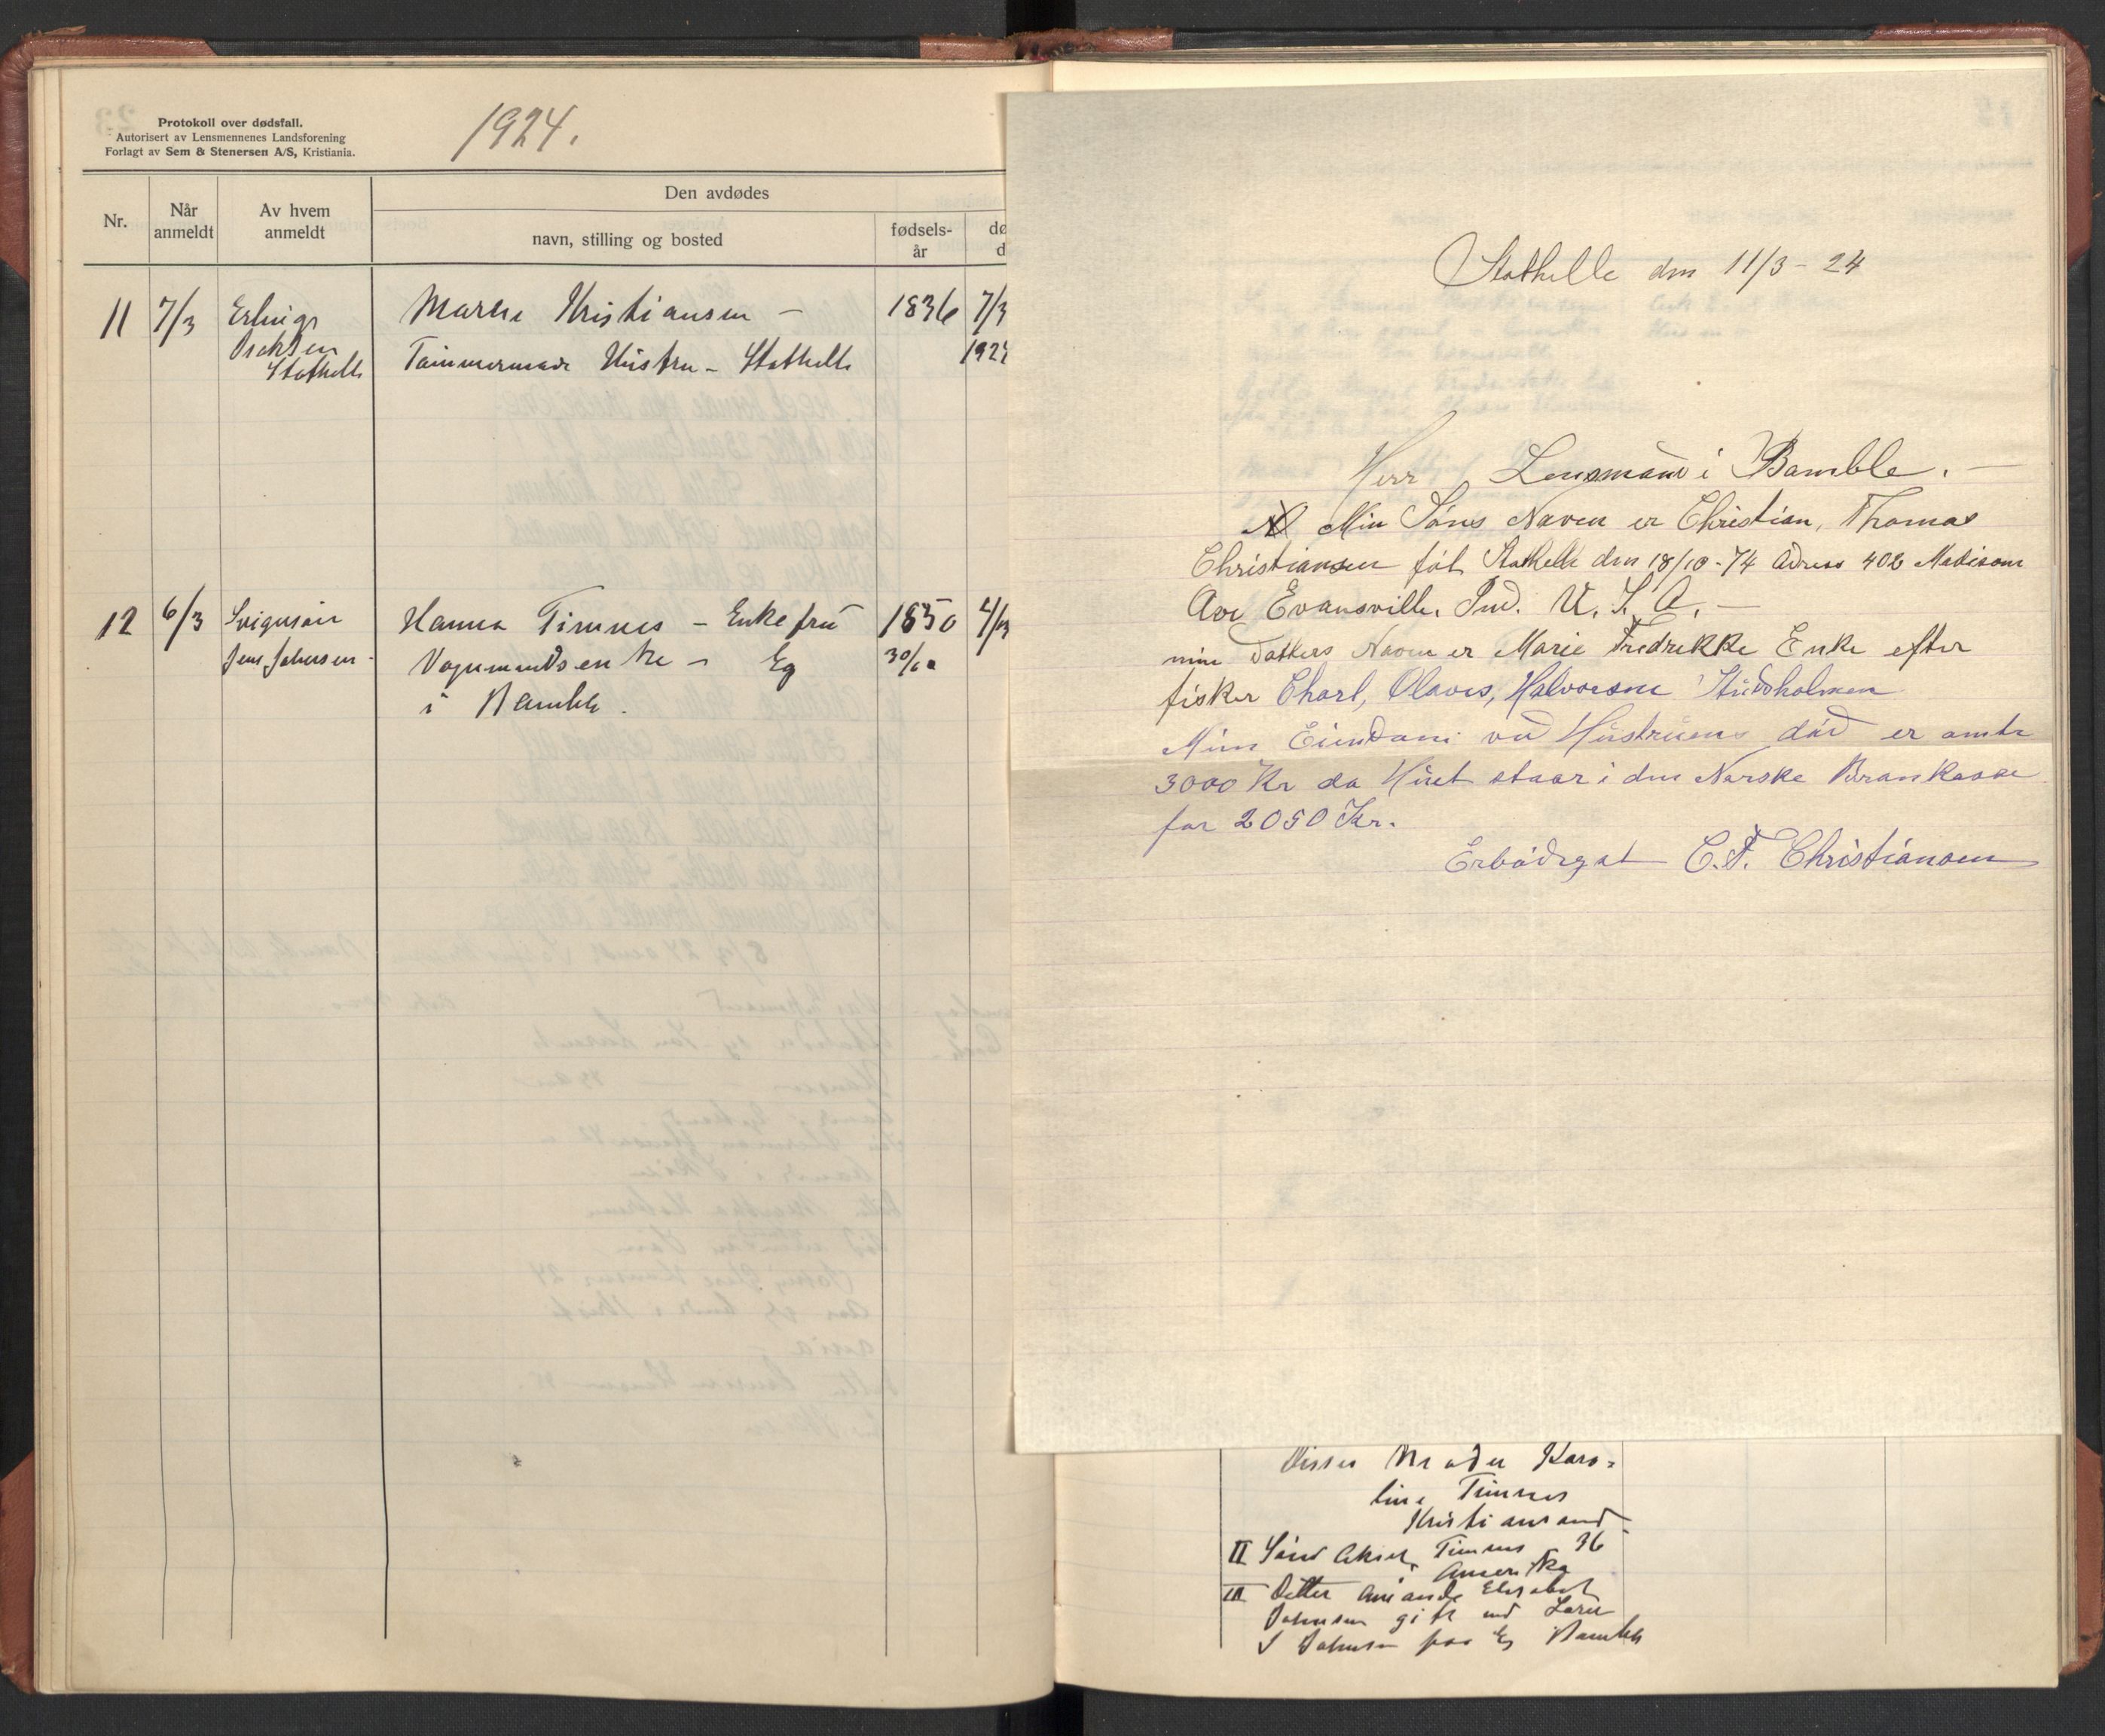 Protokoll over dødsfall.
Autorisert av Lensmennenes Landsforening
Forlagt av Sem & Stenersen A/S, Kristiania.
1924.
Nr.
Når
anmeldt
Av hvem
anmeldt
Den avdødes
navn, stilling og bosted
fødsels-
år
dø
d
11 7/3 Erling Maren Kristiansen – 1836 7/3
Stathelle Tømmermands Hustru – Stathelle 192
12 6/3 Svigersøn Hanna Timnes – Enkefru 1850 4/3
Jens Johnsen – Enke – Eg 30/10
i Bamble.
Stathelle den 11/3 – 24
Herr Lensmann i Bamble. –
Min Søns Naven er Christian, Thomas
Christiansenføt Stathelle den 18/10-74 Adress 402 Madison
Ave Evansville, Ind. U.S.A. –
min Datters Navn er Marie Fredrekke Enke efter
fisker Charl, Olaves, Halvorsen
Min Eiendom ved Hustruens død er omtr
3000 Kr da Huset staar i den Norske Brankasse
for 2050 Kr.
Erbødigst C.T. Christiansen
Disses Moder Karo-
line Timnes
Kristiansand
II Søn Aksel Timnes 36
i Amerika
III Datter Elisabet
Johnsen gift med
Johnsen paa Eg Bamble